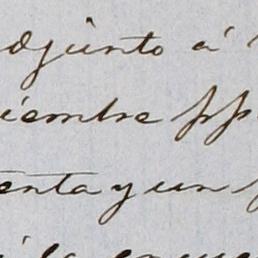 adjunto á
iembre pp
enta y un